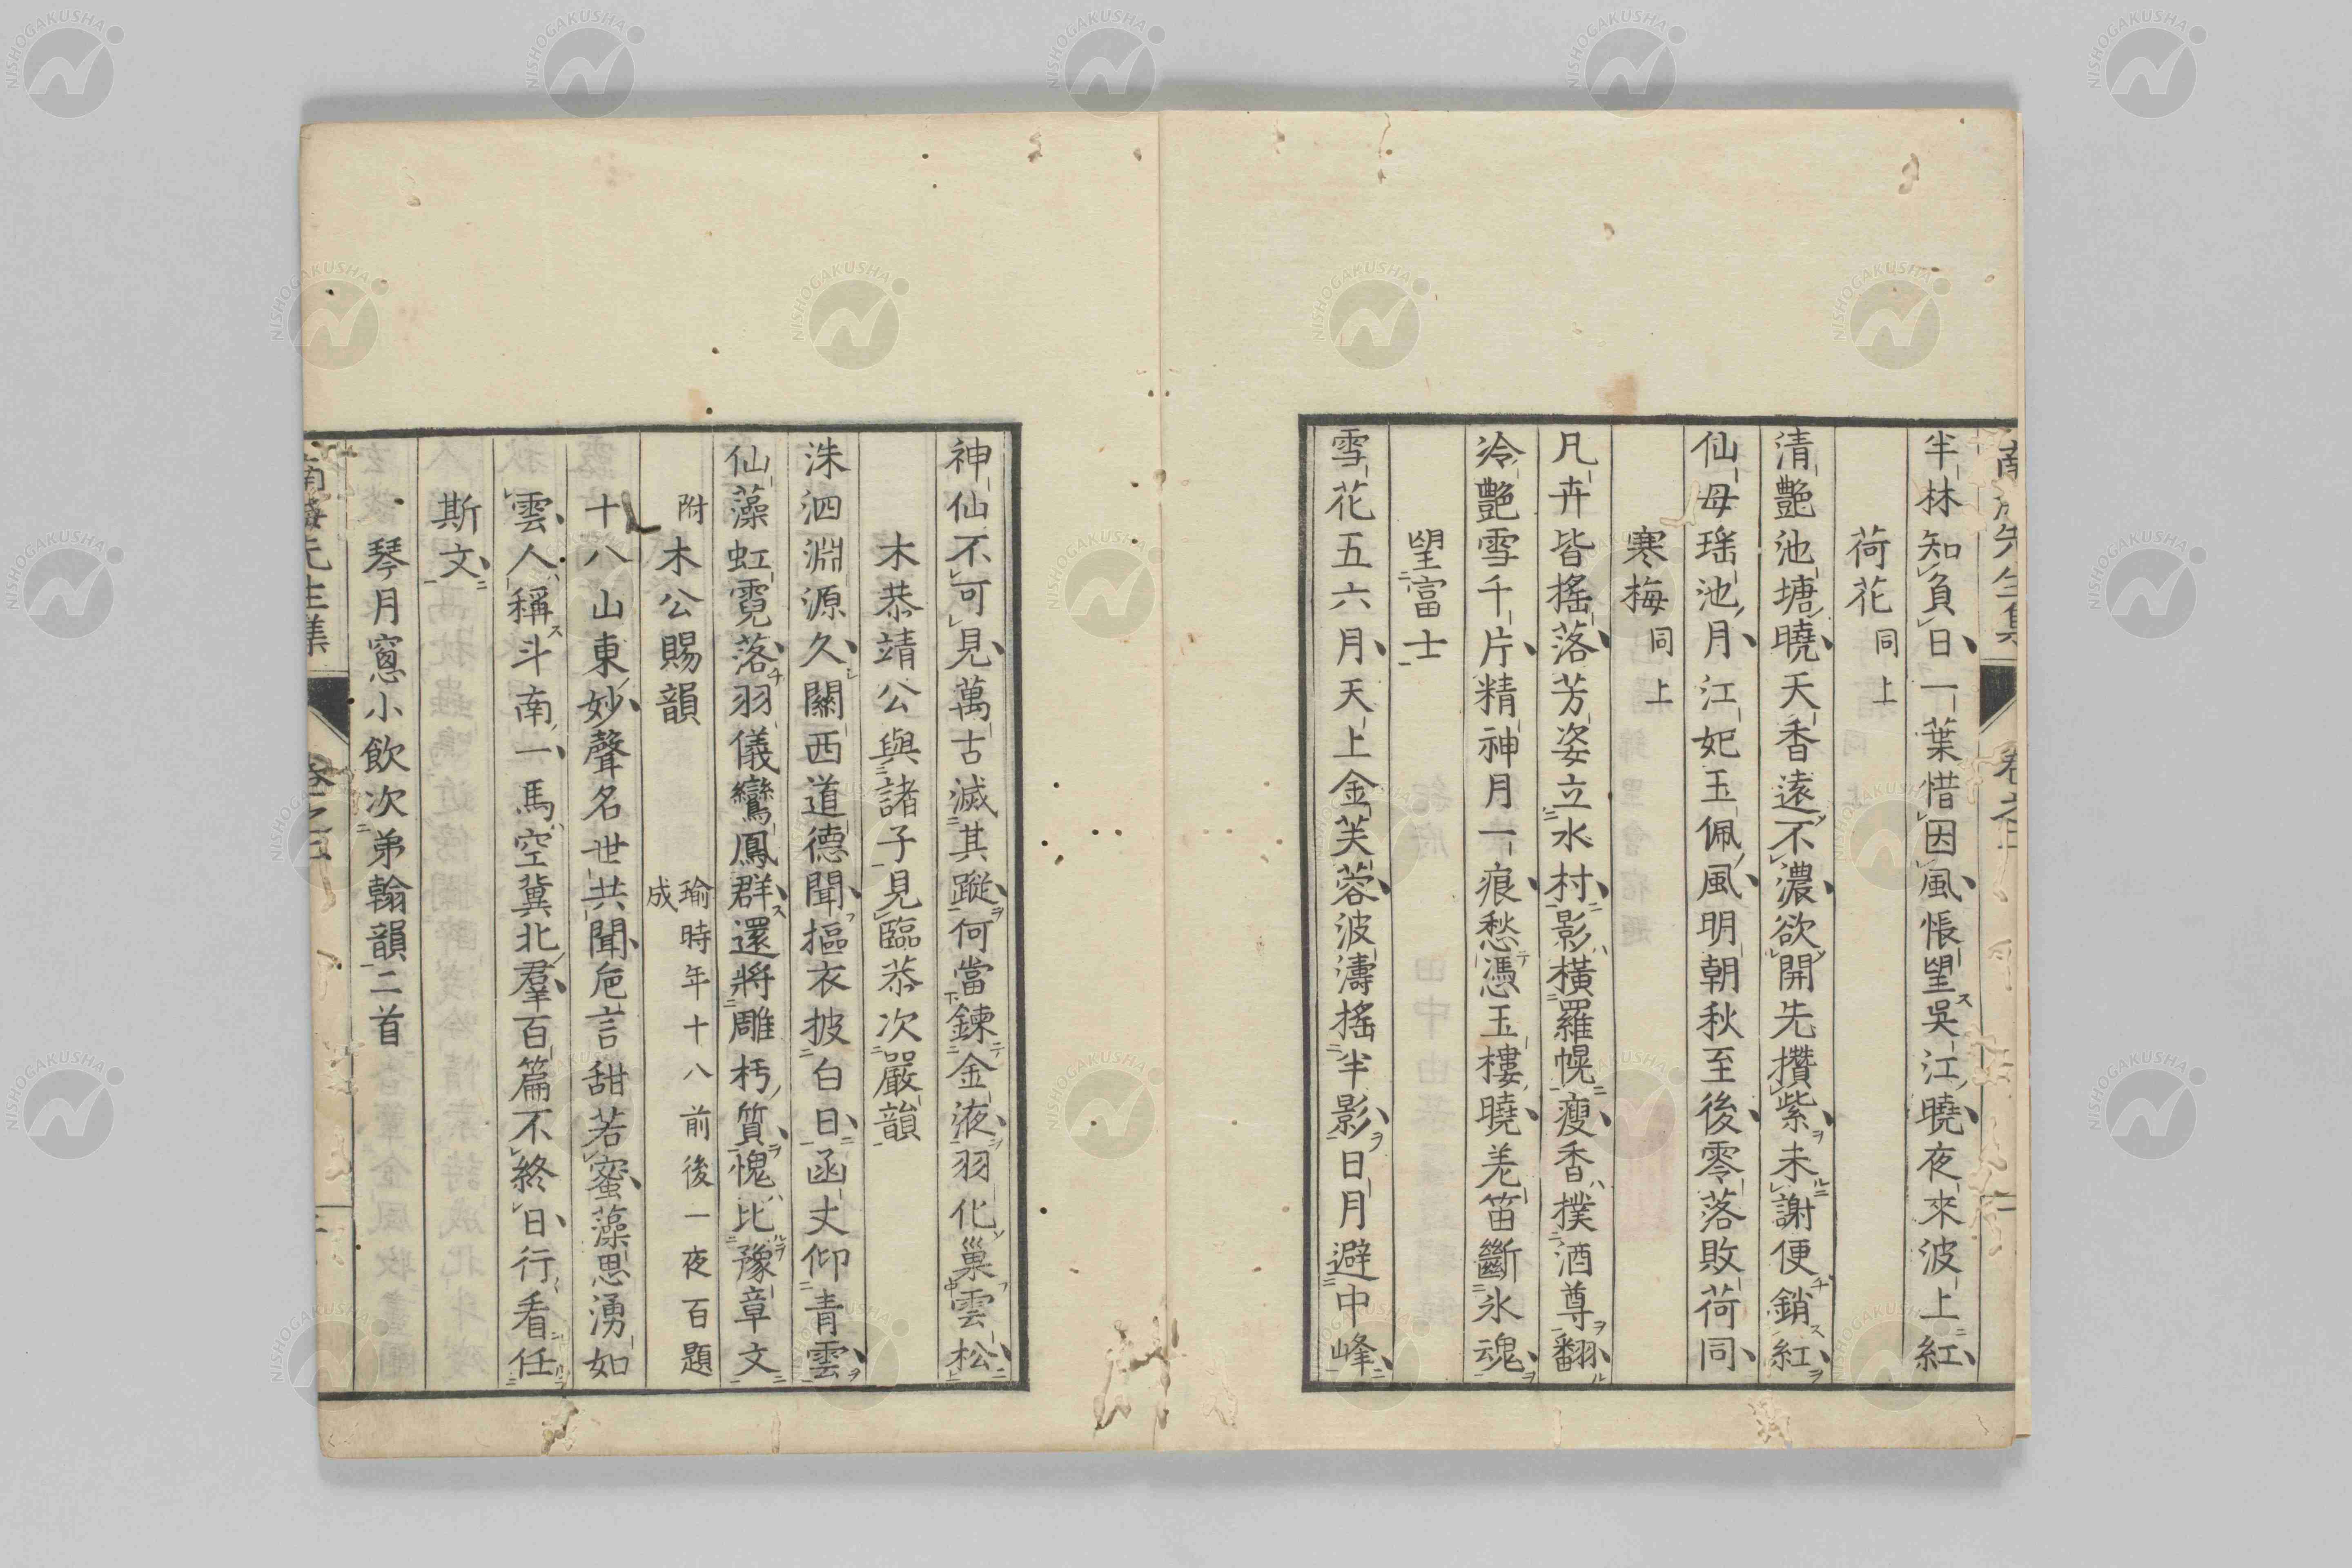 半林知負日一葉惜因風悵望吳江曉夜來波上紅
荷花 同上
清艷池塘曉天香遠不濃欲開先攢紫未謝便銷紅
仙母瑤池月江妃玉佩風明朝秋至後零落敗荷同
寒梅 同上
凡卉皆搖落芳姿立水村影橫羅幌瘦香撲酒尊翻
冷艷雪千片精神月一痕愁憑玉樓曉羌笛斷氷魂
望富士
雪花五六月天上金芙蓉波濤搖半影日月避中峰
神仙不可見萬古滅其蹤何當鍊金液羽化巢雲松
木恭靖公與諸子見臨恭次嚴韻
洙泗淵源久關西道德聞摳衣披白日函丈仰青雲
仙藻虹霓落羽儀鸞鳳群還將雕朽質愧比豫章文
附木公賜韻 瑜時年十八前後一夜百題成
十八山東妙聲名世共聞巵言甜若蜜藻思湧如
雲人稱斗南一馬空冀北羣百篇不終日行看任
斯文
琴月窓小飲次弟翰韻二首
南海先生集
NISHOGAKUSHA